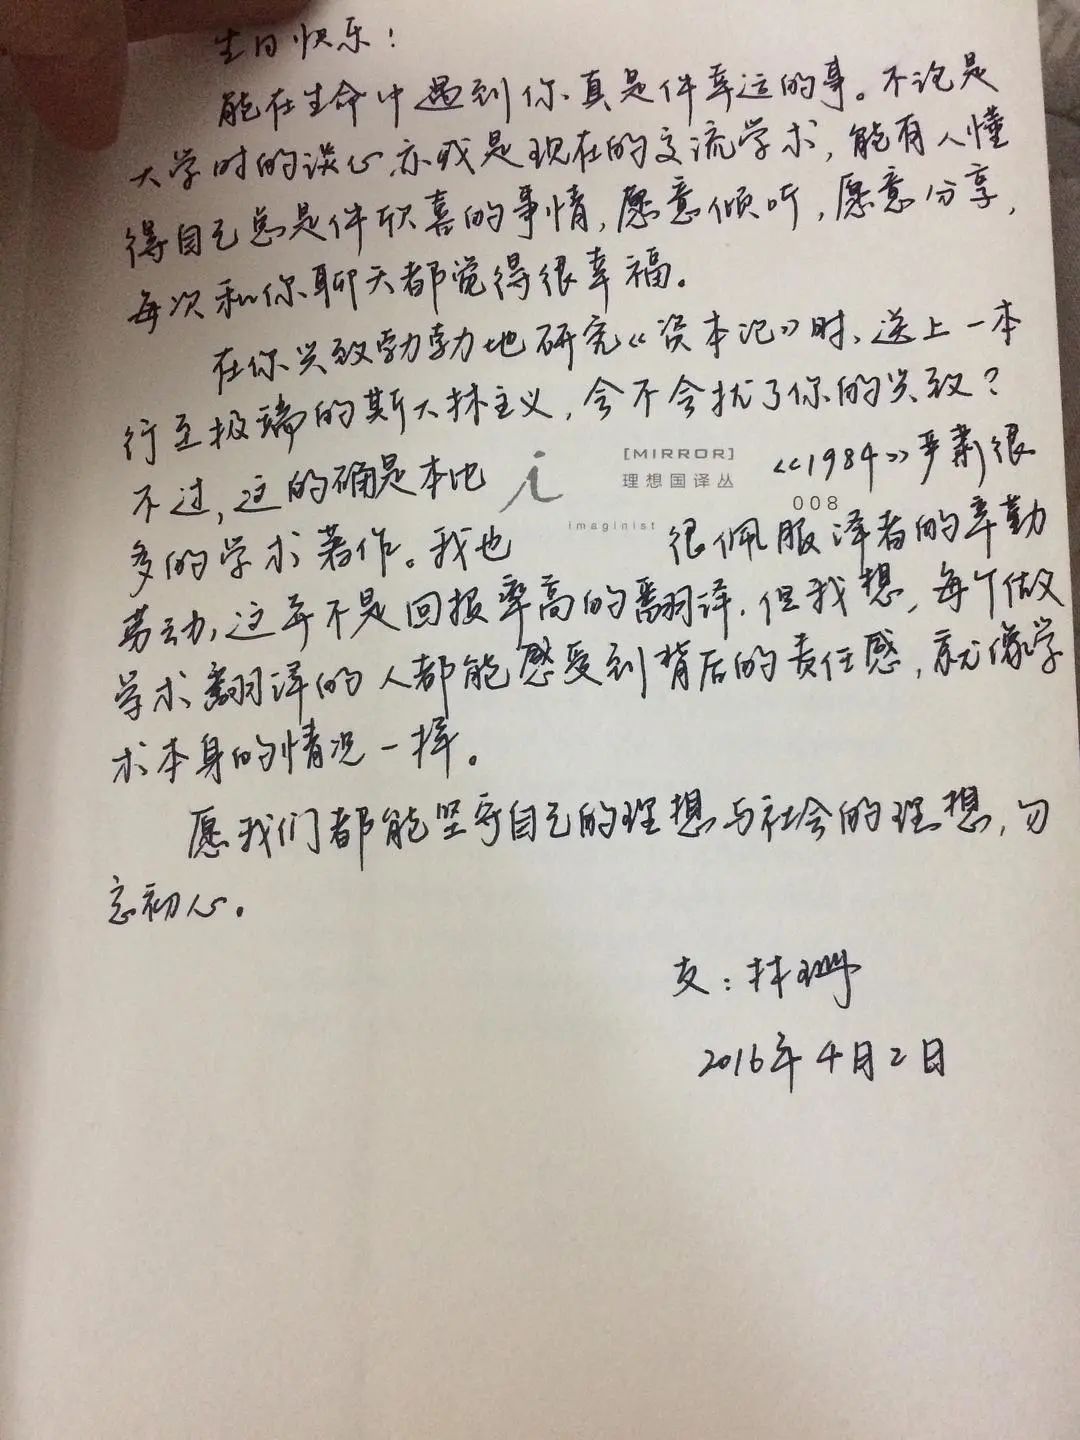 生日快乐！
能在生命中遇到你真是件幸运的事。不论是
大学时的谈心，亦或是现在的交流学术，能有人懂
得自己总是件欣喜的事情，愿意倾听，愿意分享，
每次和你聊天都觉得很幸福。
在你兴致勃勃地研究《资本论》时，送上一本
行至极端的斯大林主义，会不会扰了你的兴致？
不过，这的确是本比《1984》严肃很
[MIRROR]
理想国译丛
008
imaginist
多的学术著作。我也很佩服译者的辛勤
劳动，这并不是回报率高的翻译，但我想，每个做
学术翻译的人都能感受到背后的责任感，就像学
术本身的情况一样。
愿我们都能坚守自己的理想与社会的理想，勿
忘初心。
友：林珊
2016年4月2日